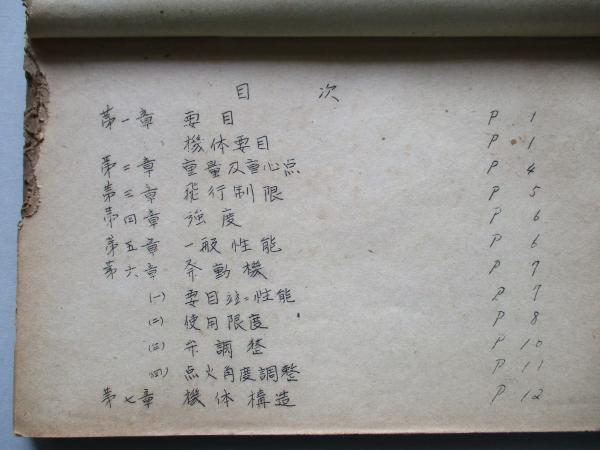 目 次
第一章 要目 P 1
機体要目 P 1
第二章 重量及重心点 P 4
第三章 飛行制限 P 5
第四章 強度 P 6
第五章 一般性能 P 6
第六章 発動機 P 7
(一) 要目並ニ性能 P 7
(二) 使用限度 P 8
(三) 弁調整 P 10
(四) 点火角度調整 P 11
第七章 機体構造 P 12